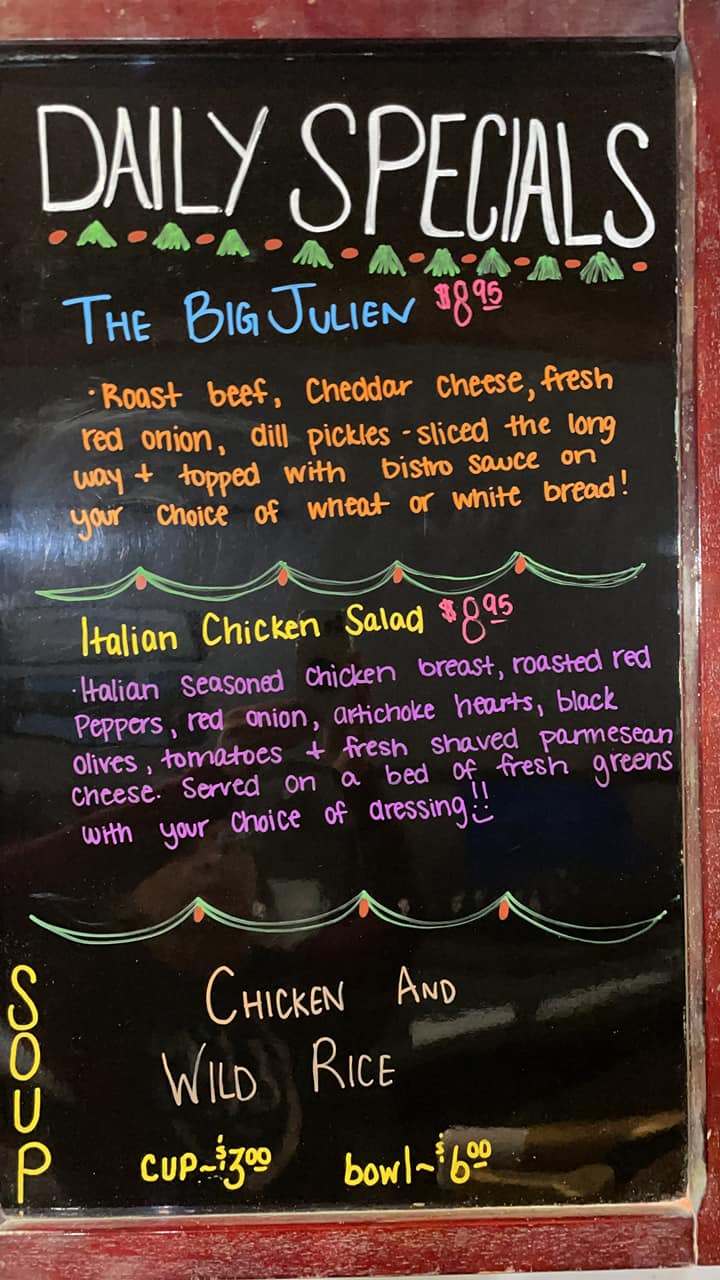 DAILY SPECIALS
THE BIG JULIEN $8.95
· Roast beef, Cheddar Cheese, fresh
red onion, dill pickles - sliced the long
way + topped with bistro sauce on
your Choice of wheat or white bread!
Italian Chicken Salad $8.95
· Italian seasoned chicken breast, roasted red
Peppers, red onion, artichoke hearts, black
olives, tomatoes + fresh shaved parmesean
cheese. Served on a bed of fresh greens
with your Choice of dressing!!
SOUP
CHICKEN AND
WILD RICE
CUP~$3.00 bowl~$6.00